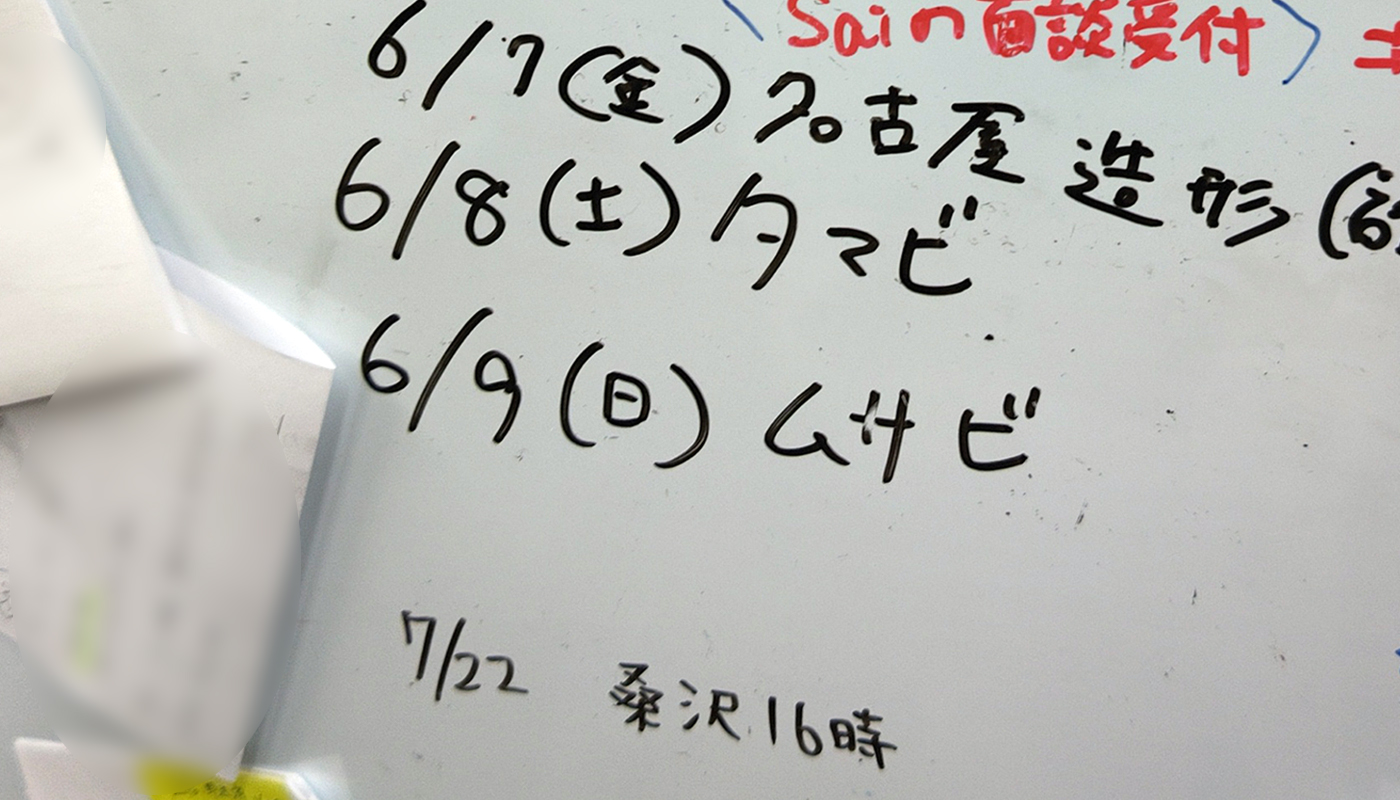 Sain面談受付
6/7(金) 名古屋 造形
6/8(土) タマビ
6/9(日) ムサビ
7/22 桑沢 16時